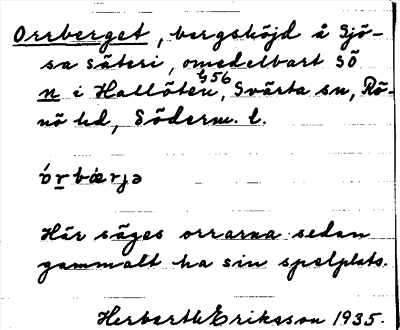 Orrberget, bergshöjd å Sjö-
sa säteri, omedelbart SÖ
n i Hallöten 456, Svärta sn, Rö-
nö hd, Söderm. l.
ór bærjə
Här säges orrarna sedan
gammalt ha sin spelplats.
Herbert Eriksson 1935.